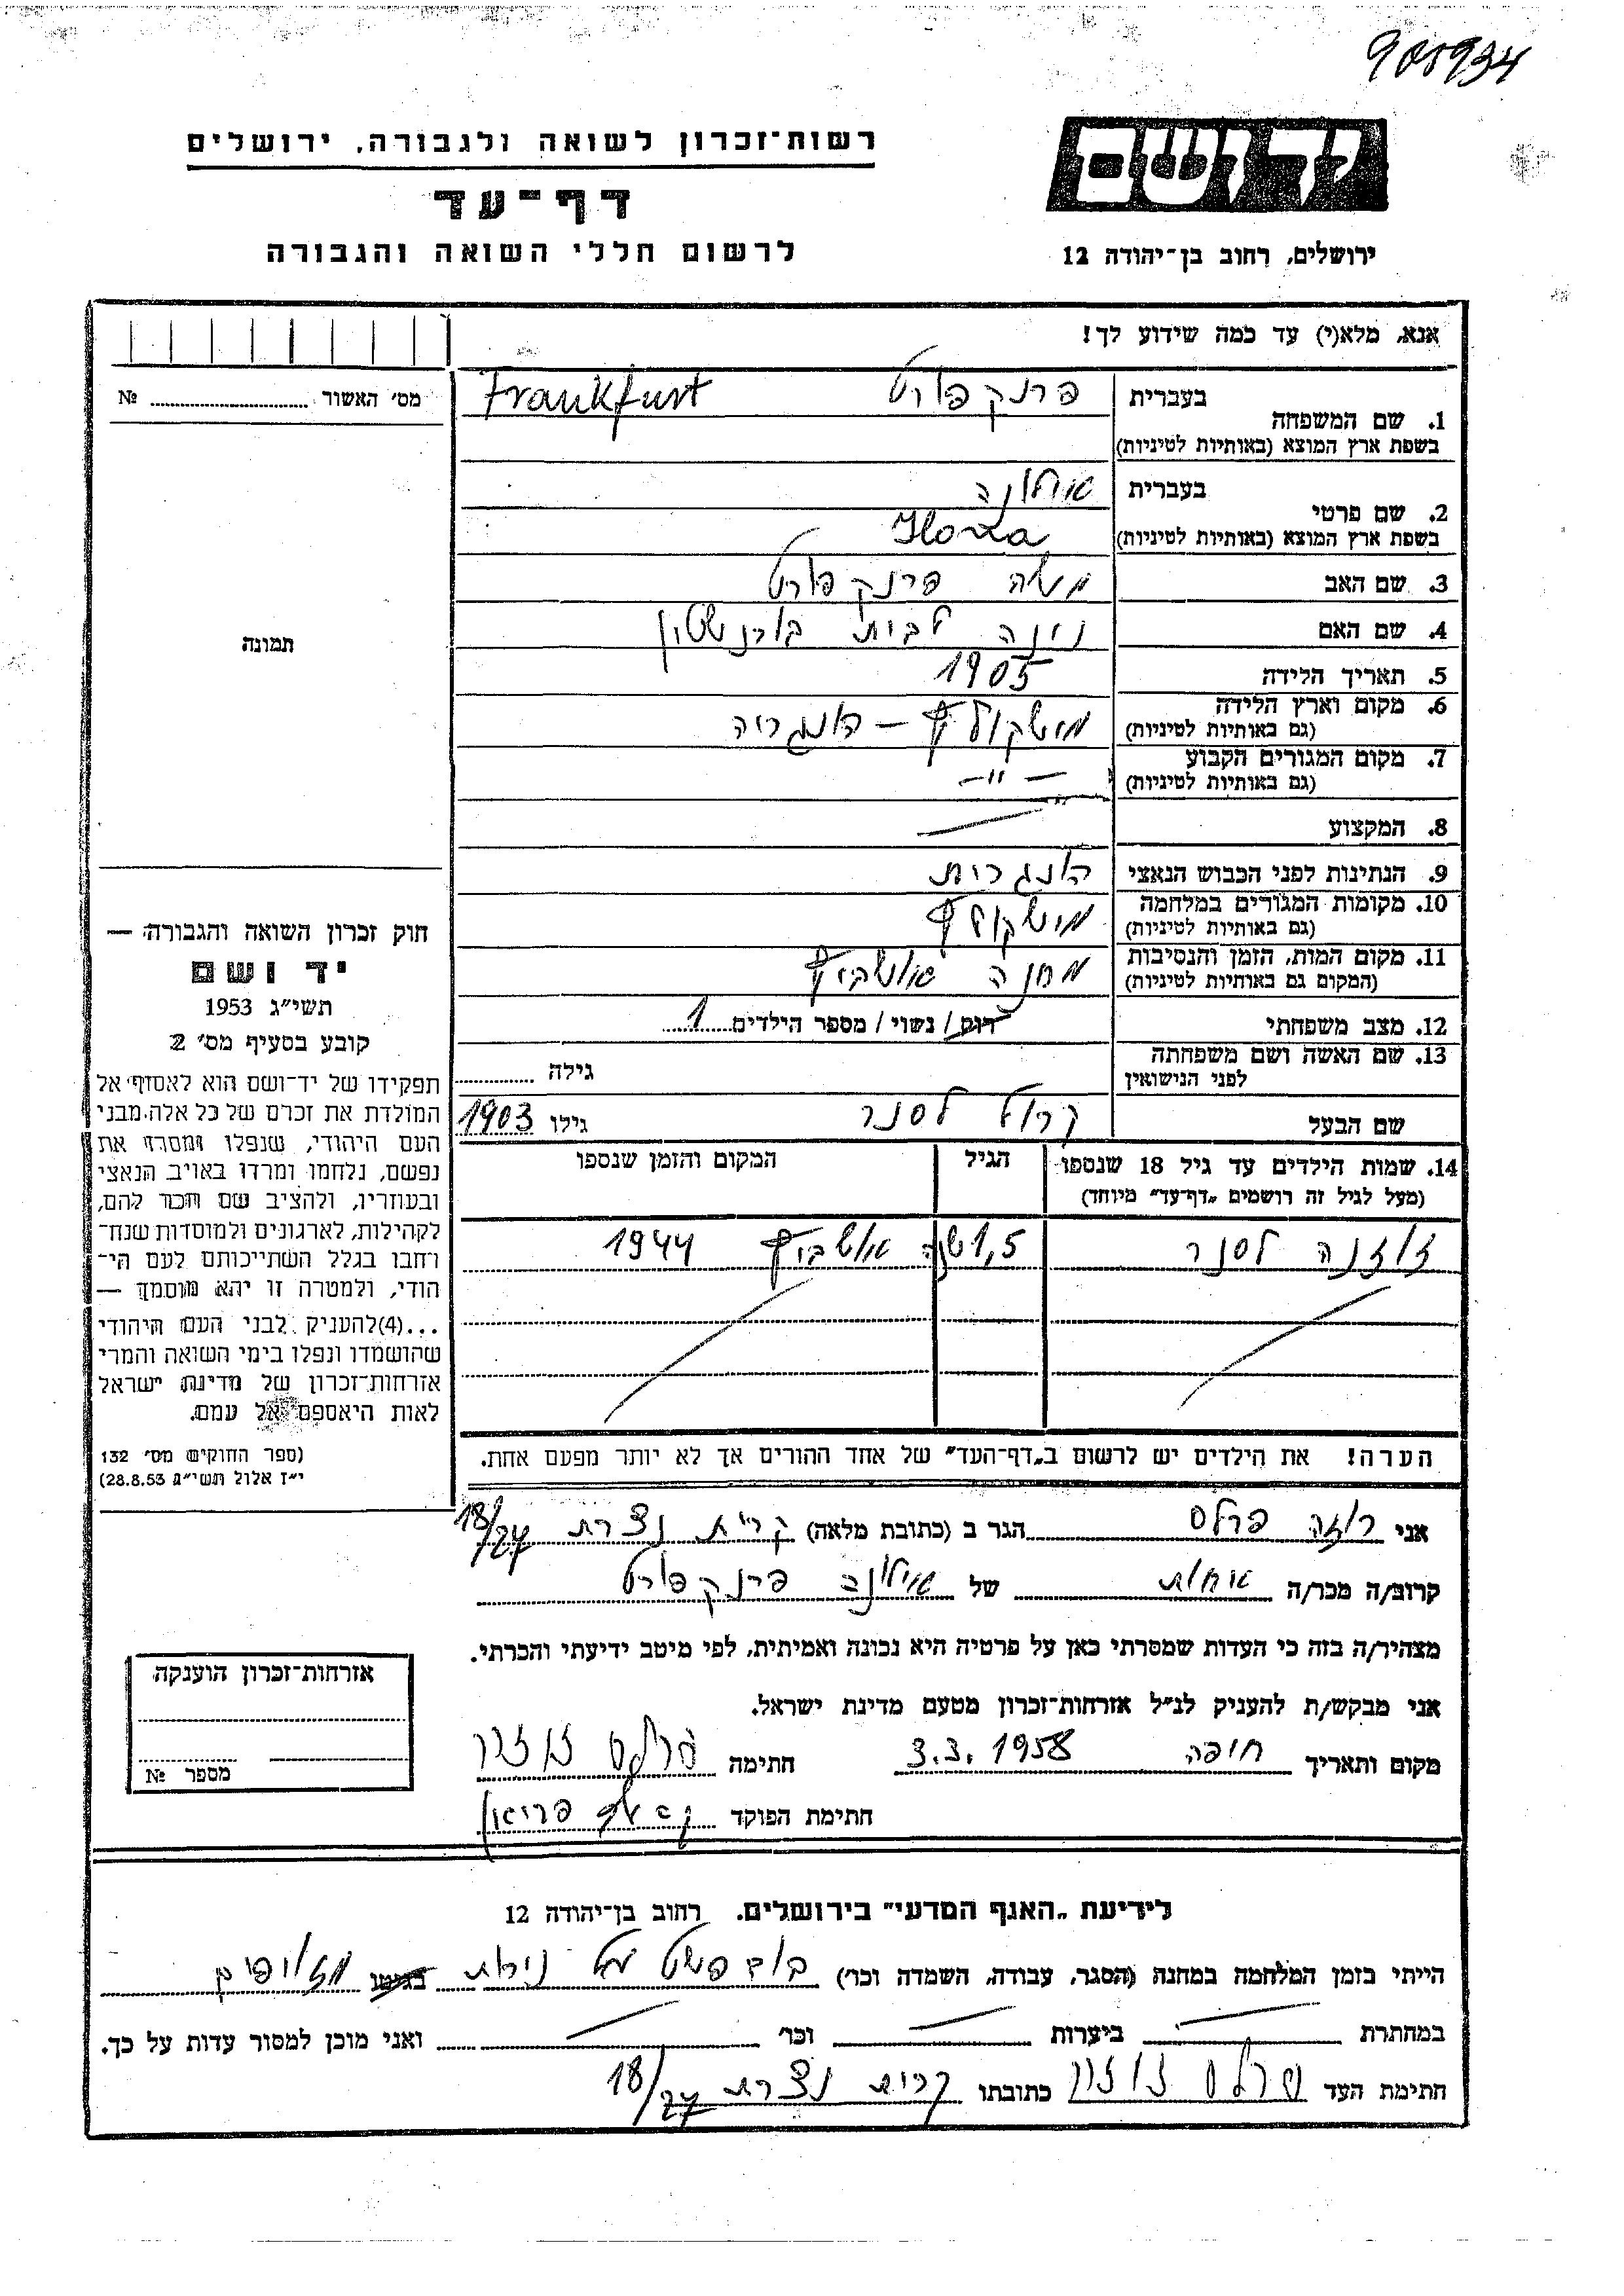 908934
רשות־זכרון לשואה ולגבורה, ירושלים
דף־עד
לרשום חללי השואה והגבורה
יד ושם
ירושלים, רחוב בן־יהודה 12
אנא, מלא(י) עד כמה שידוע לך!
מס׳ האשור № 
תמונה
1. שם המשפחה
בעברית פרנקפורט Frankfurt
בשפת ארץ המוצא (באותיות לטיניות)
2. שם פרטי
בעברית אילונה
בשפת ארץ המוצא (באותיות לטיניות) Ilona
3. שם האב משה פרנקפורט
4. שם האם נינה לבית בורנשטין
5. תאריך הלידה 1905
6. מקום וארץ הלידה מישקולץ – הונגריה
(גם באותיות לטיניות)
7. מקום המגורים הקבוע – " –
(גם באותיות לטיניות)
8. המקצוע
9. הנתינות לפני הכבוש הנאצי הונגרית
10. מקומות המגורים במלחמה מישקולץ
(גם באותיות לטיניות)
11. מקום המות, הזמן והנסיבות מחנה אושביץ
(המקום גם באותיות לטיניות)
12. מצב משפחתי רווק / נשוי / מספר הילדים 1
13. שם האשה ושם משפחתה
לפני הנישואין גילה
שם הבעל קרול לסנר גילו 1903
14. שמות הילדים עד גיל 18 שנספו הגיל המקום והזמן שנספו
(מעל לגיל זה רושמים „דף־עד״ מיוחד)
זוזנה לסנר 1,5 שנה אושביץ 1944
הערה! את הילדים יש לרשום ב„דף־העד״ של אחד ההורים אך לא יותר מפעם אחת.
חוק זכרון השואה והגבורה —
יד ושם
תשי״ג 1953
קובע בסעיף מס׳ 2
תפקידו של יד־ושם הוא לאסוף אל
המולדת את זכרם של כל אלה מבני
העם היהודי, שנפלו ומסרו את
נפשם, נלחמו ומרדו באויב הנאצי
ובעוזריו, ולהציב שם וזכר להם,
לקהילות, לארגונים ולמוסדות שנח־
רחבו בגלל השתייכותם לעם הי־
הודי, ולמטרה זו יהא מוסמך —
...(4) להעניק לבני העם היהודי
שהושמדו ונפלו בימי השואה והמרי
אזרחות־זכרון של מדינת ישראל
לאות היאספם אל עמם.
(ספר החוקים מס׳ 132
י״ז אלול תשי״ג 28.8.53)
אני רוזה פרלס הגר ב (כתובת מלאה) קרית נצרת 18/27
קרוב/ה מכר/ה אחות של אילונה פרנקפורט
מצהיר/ה בזה כי העדות שמסרתי כאן על פרטיה היא נכונה ואמיתית, לפי מיטב ידיעתי והכרתי.
אני מבקש/ת להעניק לנ״ל אזרחות־זכרון מטעם מדינת ישראל.
מקום ותאריך חיפה 3.3.1958 חתימה פרלס
חתימת הפוקד
אזרחות־זכרון הוענקה
מספר №
לידיעת „האגף המדעי״ בירושלים. רחוב בן־יהודה 12
הייתי בזמן המלחמה במחנה (הסגר, עבודה, השמדה וכו׳) בודפשט בגיטו מזויפים
במחתרת ביערות וכו׳ ואני מוכן למסור עדות על כך.
חתימת העד פרלס כתובתו קרית נצרת 18/27